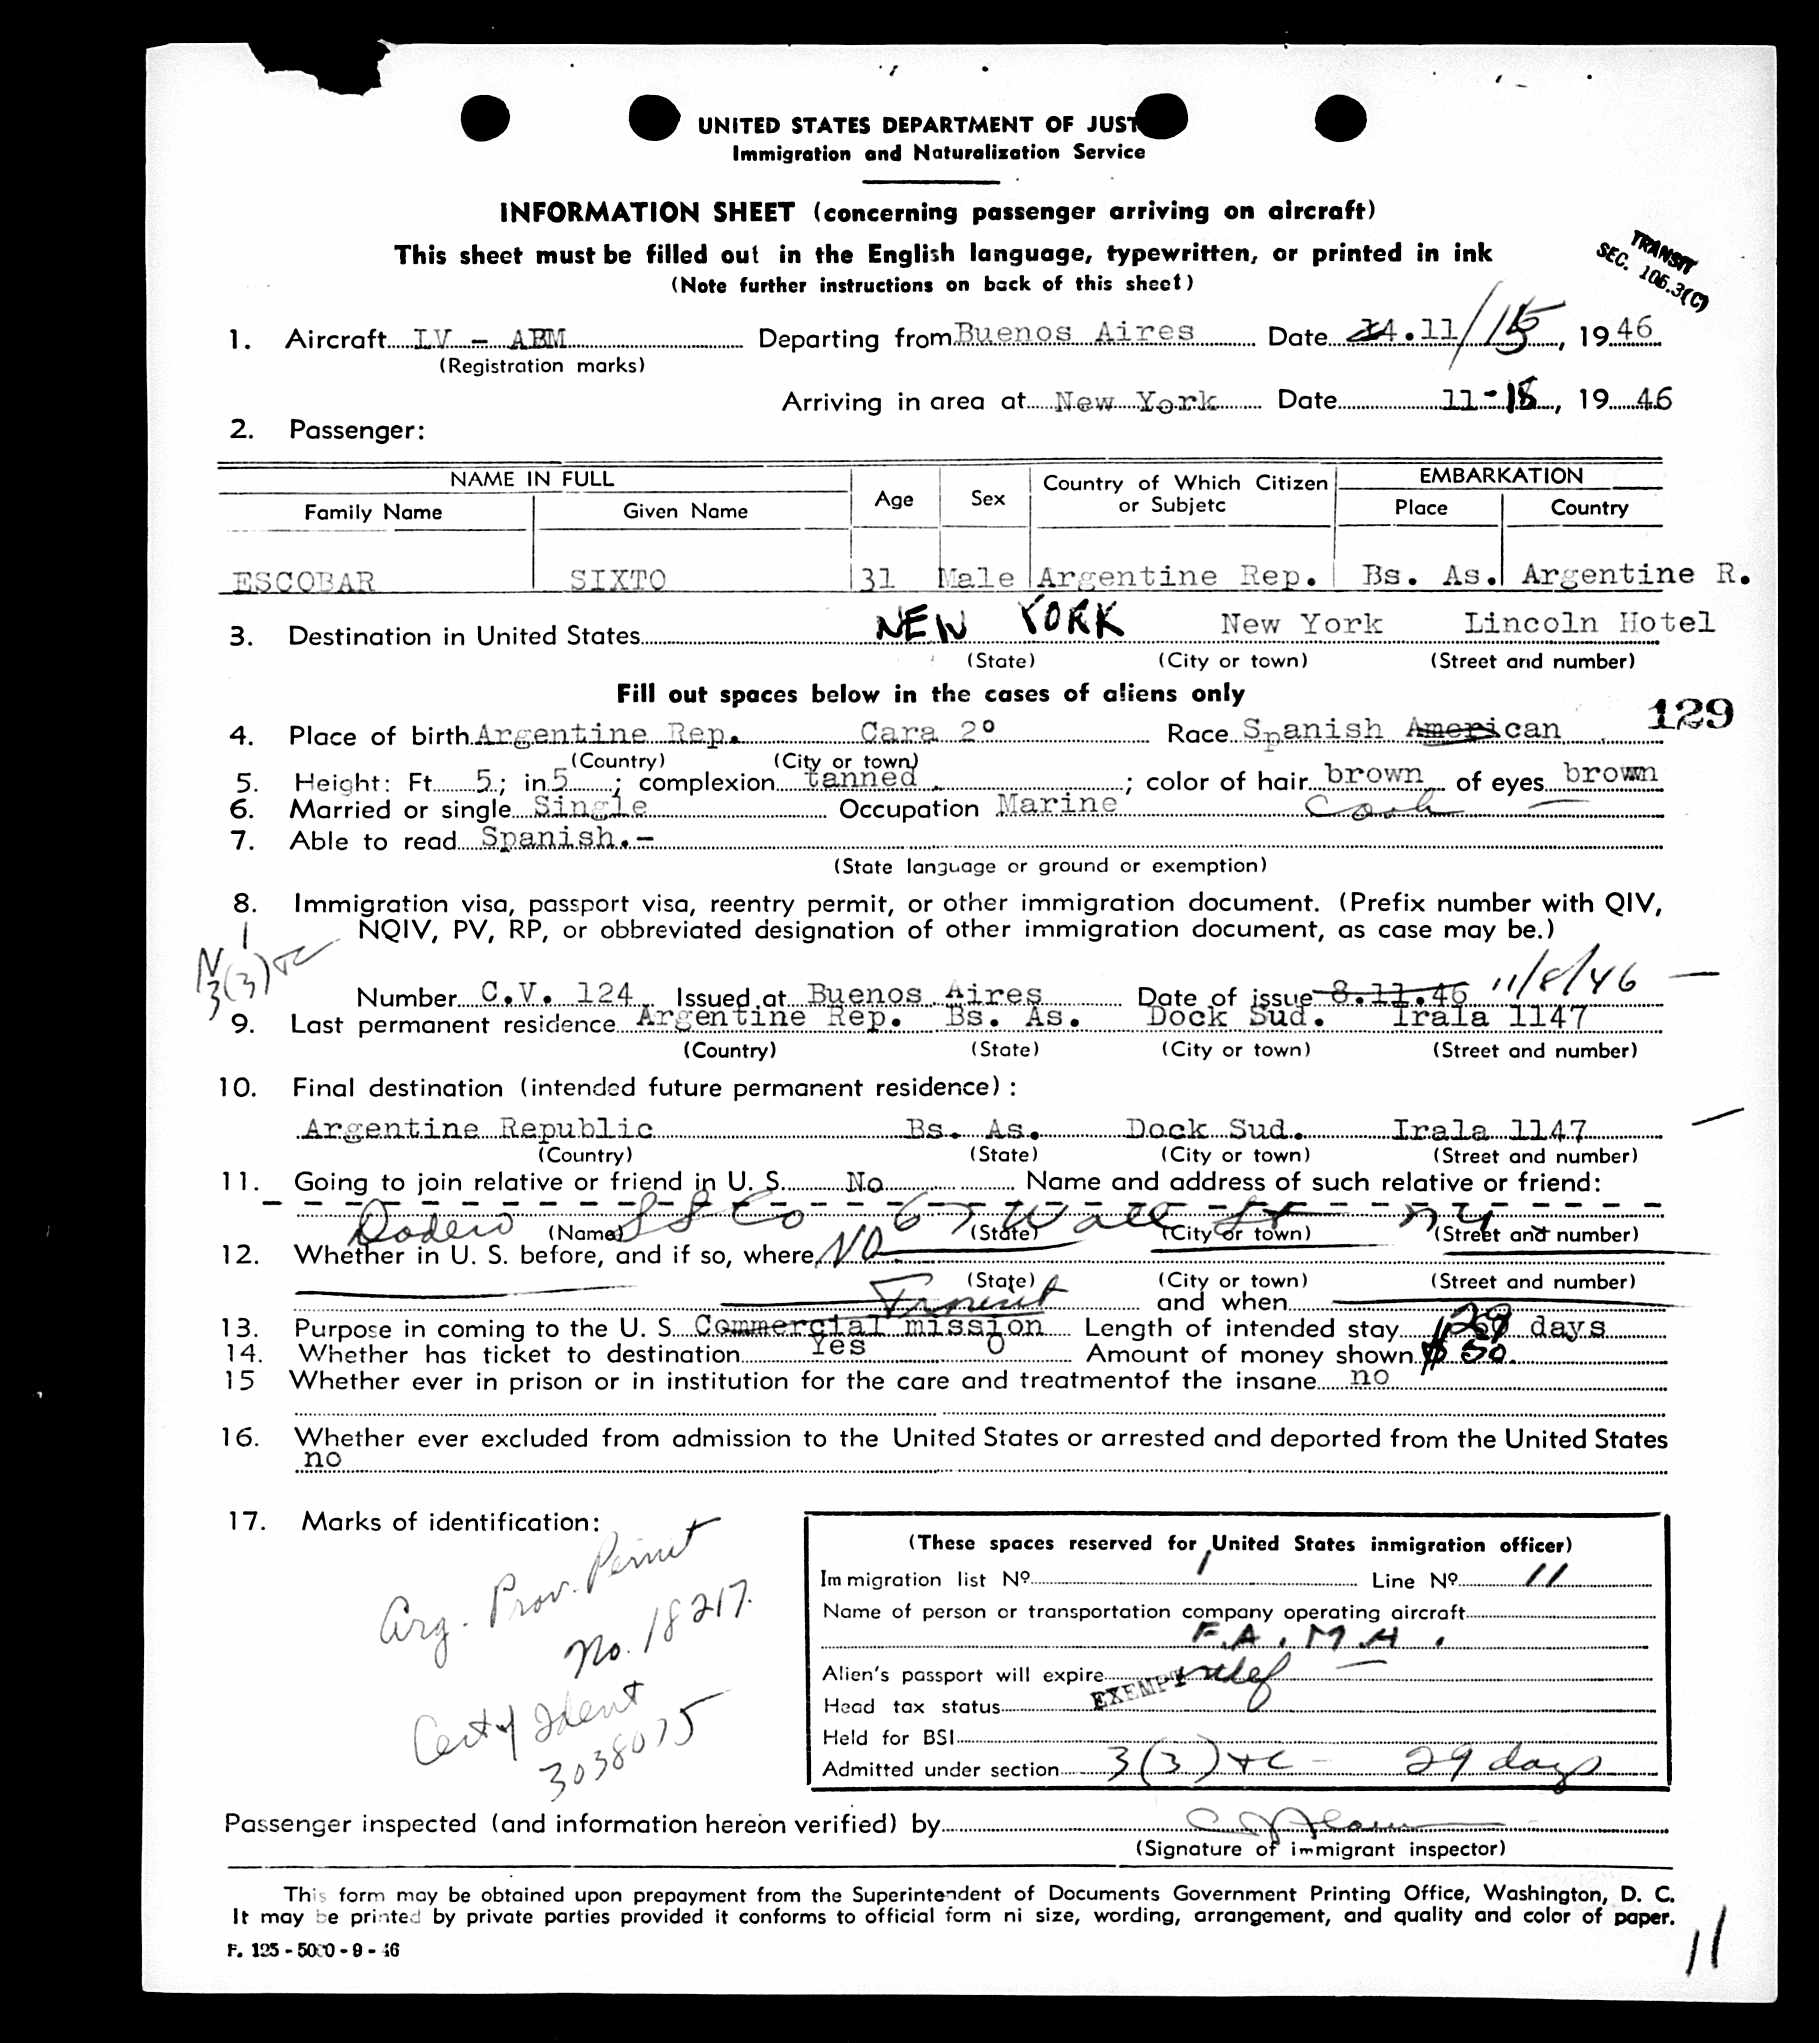 UNITED STATES DEPARTMENT OF JUST
Immigration and Naturalization Service
INFORMATION SHEET (concerning passenger arriving on aircraft)
This sheet must be filled out in the English language, typewritten, or printed in ink
(Note further instructions on back of this sheet)
TRANSIT
SEC. 106.3(C)
1. Aircraft LV - ABM Departing from Buenos Aires Date 14.11/15, 1946
(Registration marks)
Arriving in area at New York Date 11-18, 19 46
2. Passenger:
NAME IN FULL Age Sex Country of Which Citizen or Subjetc EMBARKATION
Family Name Given Name Place Country
ESCOBAR SIXTO 31 Male Argentine Rep. Bs. As. Argentine R.
3. Destination in United States NEW YORK New York Lincoln Hotel
(State) (City or town) (Street and number)
Fill out spaces below in the cases of aliens only
129
4. Place of birth Argentine Rep. Cara 2º Race Spanish American
(Country) (City or town)
5. Height: Ft. 5; in 5; complexion tanned; color of hair brown of eyes brown
6. Married or single Single Occupation Marine Cook
7. Able to read Spanish.-
(State language or ground or exemption)
8. Immigration visa, passport visa, reentry permit, or other immigration document. (Prefix number with QIV,
NQIV, PV, RP, or obbreviated designation of other immigration document, as case may be.)
3(3) TC
Number C.V. 124 Issued at Buenos Aires Date of issue 8.11.46 11/8/46
9. Last permanent residence Argentine Rep. Bs. As. Dock Sud. Irala 1147
(Country) (State) (City or town) (Street and number)
10. Final destination (intended future permanent residece):
Argentine Republic Bs. As. Dock Sud. Irala 1147
(Country) (State) (City or town) (Street and number)
11. Going to join relative or friend in U. S. No Name and address of such relative or friend:
Dodero SS Co 67 Wall St NY
(Name) (State) (City or town) (Street and number)
12. Whether in U. S. before, and if so, where NO
(State) (City or town) (Street and number)
Transit and when
13. Purpose in coming to the U. S. Commercial mission Length of intended stay 29 days
14. Whether has ticket to destination Yes O Amount of money shown $ 50.
15 Whether ever in prison or in institution for the care and treatmentof the insane no
16. Whether ever excluded from admission to the United States or arrested and deported from the United States
no
17. Marks of identification:
Arg. Prov. Permit
No. 18217.
Cert of Ident
3038075
(These spaces reserved for United States inmigration officer)
Immigration list Nº 1 Line Nº 11
Name of person or transportation company operating aircraft
F.A.M.A.
Alien's passport will expire
Head tax status EXEMPT
Held for BSI
Admitted under section 3(3) TC - 29 days
Passenger inspected (and information hereon verified) by
(Signature of immigrant inspector)
This form may be obtained upon prepayment from the Superintendent of Documents Government Printing Office, Washington, D. C.
It may be printed by private parties provided it conforms to official form ni size, wording, arrangement, and quality and color of paper.
F. 125 - 5000 - 9 - 46
11